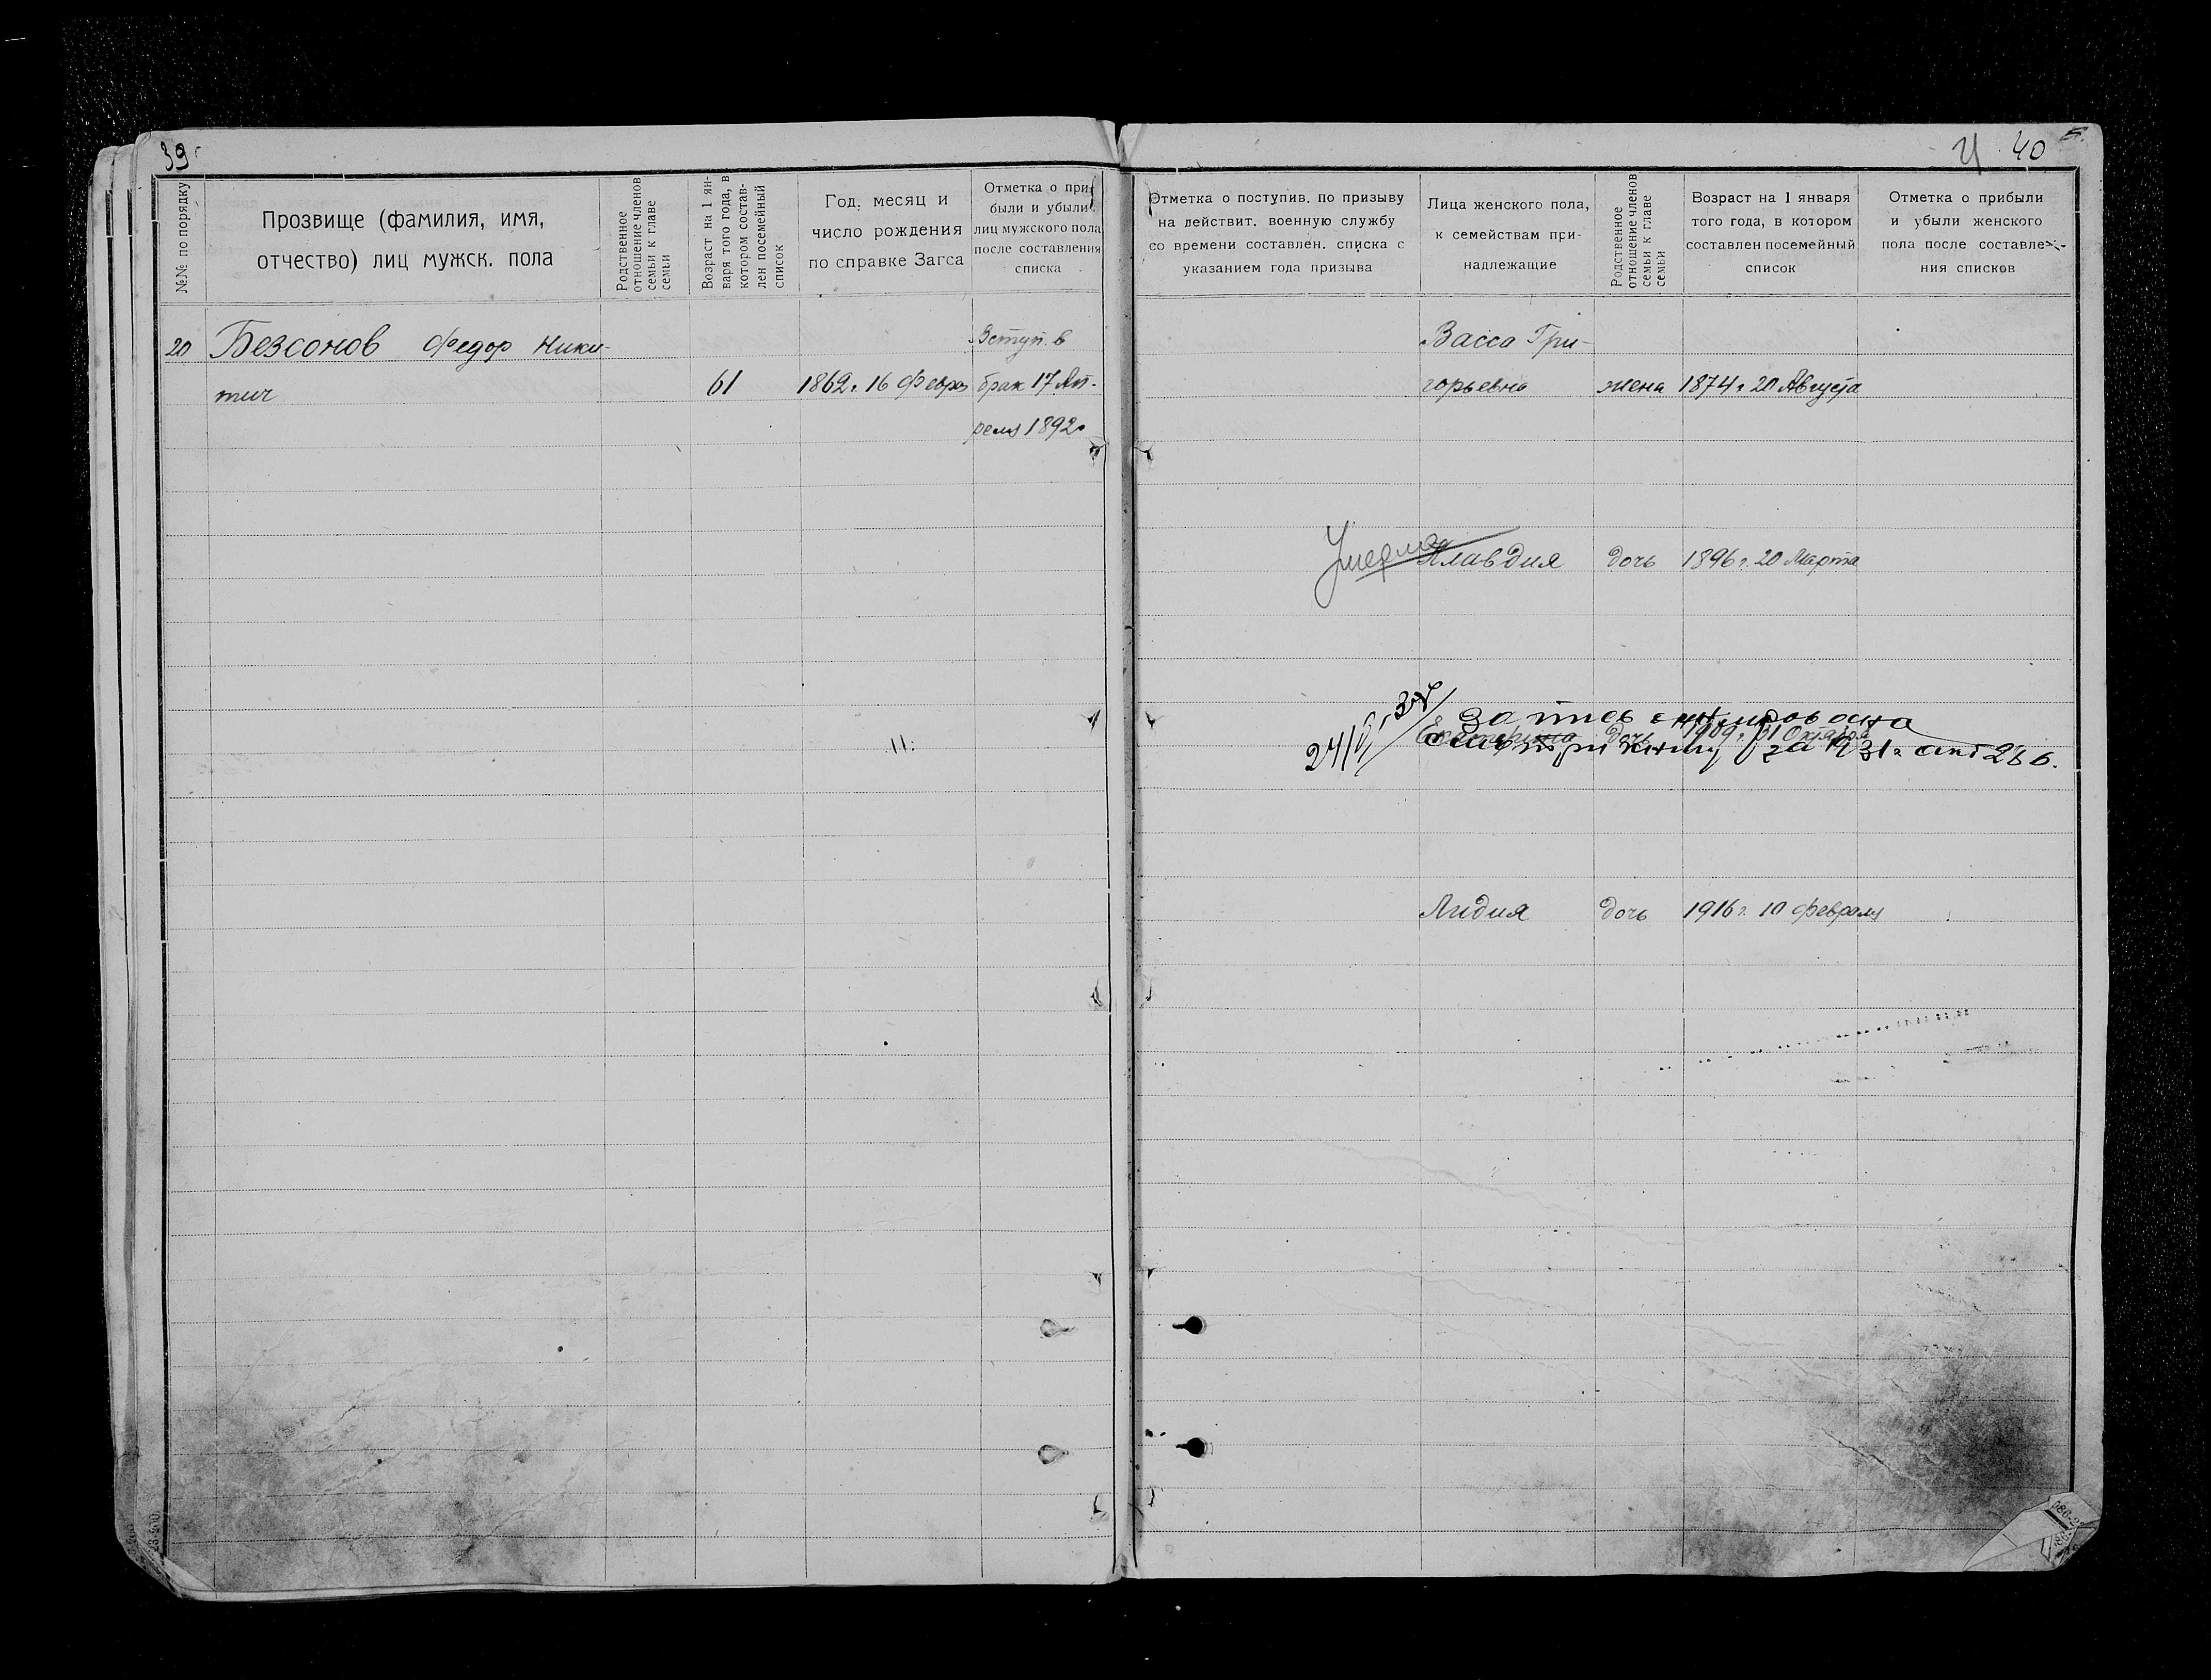 39
№№ по порядку
Прозвище (фамилия, имя,
отчество) лиц мужск. пола
Родственное
отношение членов
семьи к главе
семьи
Возраст на 1 ян-
варя того года, в
котором состав-
лен посемейный
список
Год, месяц и
число рождения
по справке Загса
Отметка о при-
были и убыли
лиц мужского пола
после составления
списка
20 Безсонов Федор Ники-
тич
61
1862 г. 16 Февра
Вступ. в
брак 17 Ап-
реля 1892 г
40
Отметка о поступив. по призыву
на действит. военную службу
со времени составлен. списка с
указанием года призыва
Лица женского пола,
к семействам при-
надлежащие
Родственное
отношение членов
семьи к главе
семьи
Возраст на 1 января
того года, в котором
составлен посемейный
список
Отметка о прибыли
и убыли женского
пола после составле-
ния списков
Васса Гри-
горьевна жена 1874 г. 20 Августа
Умерла
Клавдия дочь 1896 г. 20 Марта
запись анулирована
Екатерина дочь 1909 г. Октября
за 1931 г. акт 286.
Лидия дочь 1916 г. 10 февраля